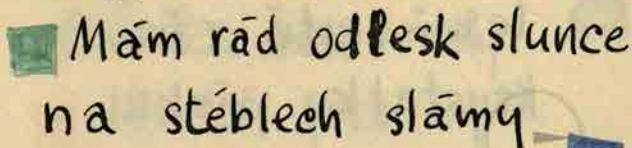 Mám rád odlesk slunce
na stéblech slámy